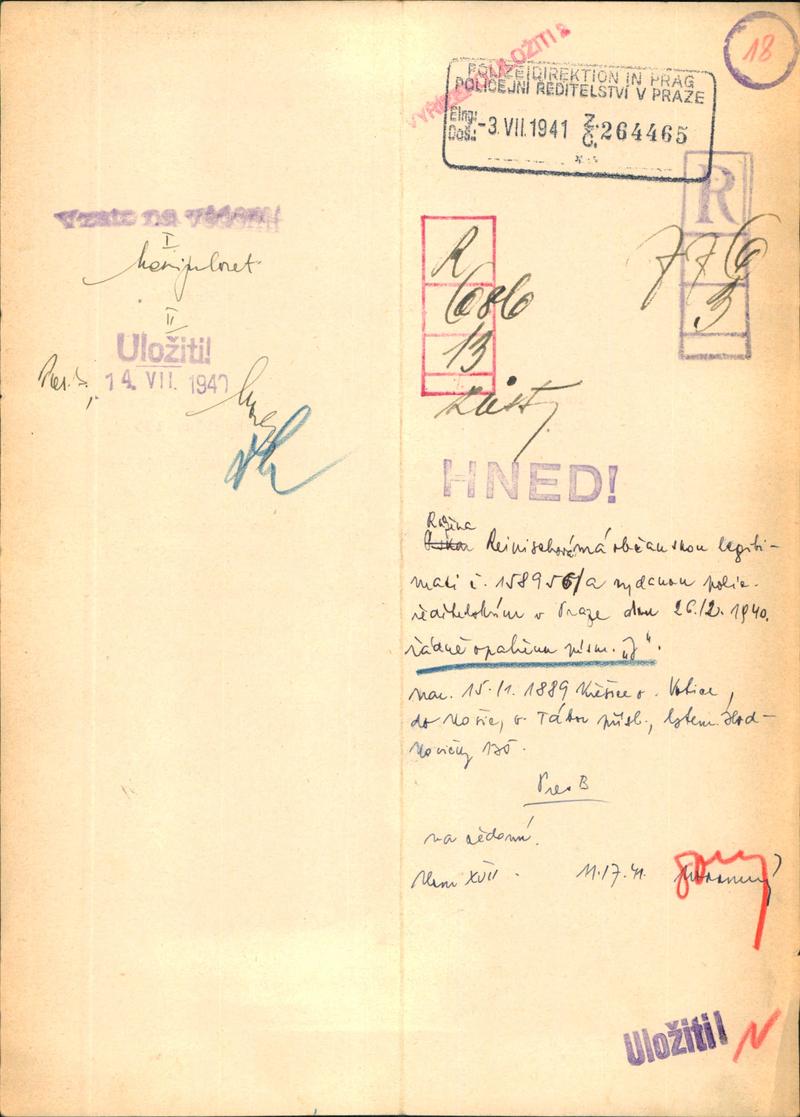 18
VYŘÍZENO ULOŽITI
POLIZEIDIREKTION IN PRAG
POLICEJNÍ ŘEDITELSTVÍ V PRAZE
Eing:
Doš.: -3. VII. 1941 Z. Č. 264465
R
Vzato na vědomí
I
II
Uložiti!
14. VII. 194
R
686
13
776
3
HNED!
Režina
Reinischová má občanskou legiti-
maci č. 158956/a vydanou polic.
ředitelstvím v Praze dne 26./2. 1940.
řádně opatřenu písm. „J“.
nar. 15./1. 1889 o. Votice,
do o. Tábor přísl., bytem Hod-
kovičky 135.
Pres B
na vědomí.
XVII 11./7.41.
Uložiti!